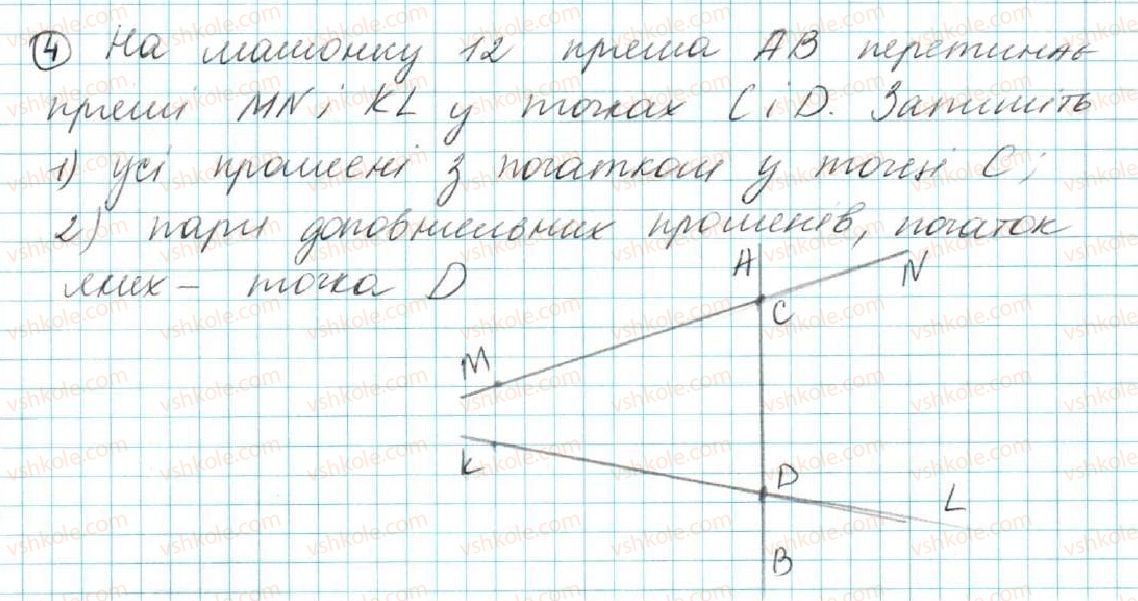 ④ На малюнку 12 пряма АВ перетинає
прямі MN і KL у точках С і D. Запишіть
1) усі промені з початком у точці С;
2) пари доповнельних променів, початок
яких – точка D
A
N
C
M
K
D
L
B
vshkole.com